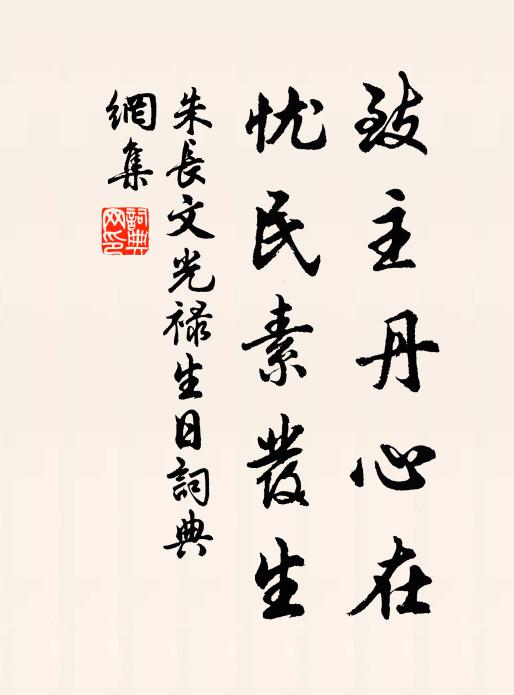 致主丹心在
忧民素发生
朱長文光禄生日詞典
網集
詞典網印